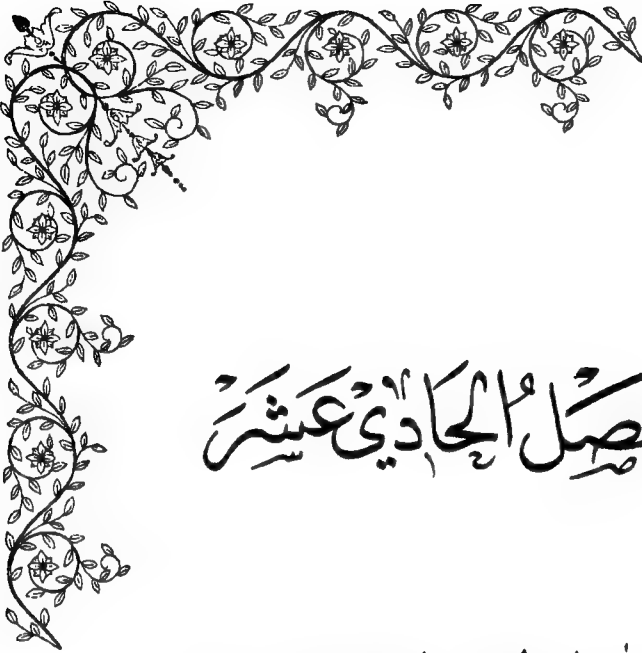 صل الحَادِي عَشَرَ